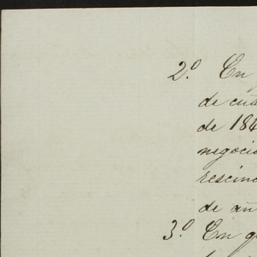 2.º En
de cua
de 184
negocia
rescind
de añ
3.º En g